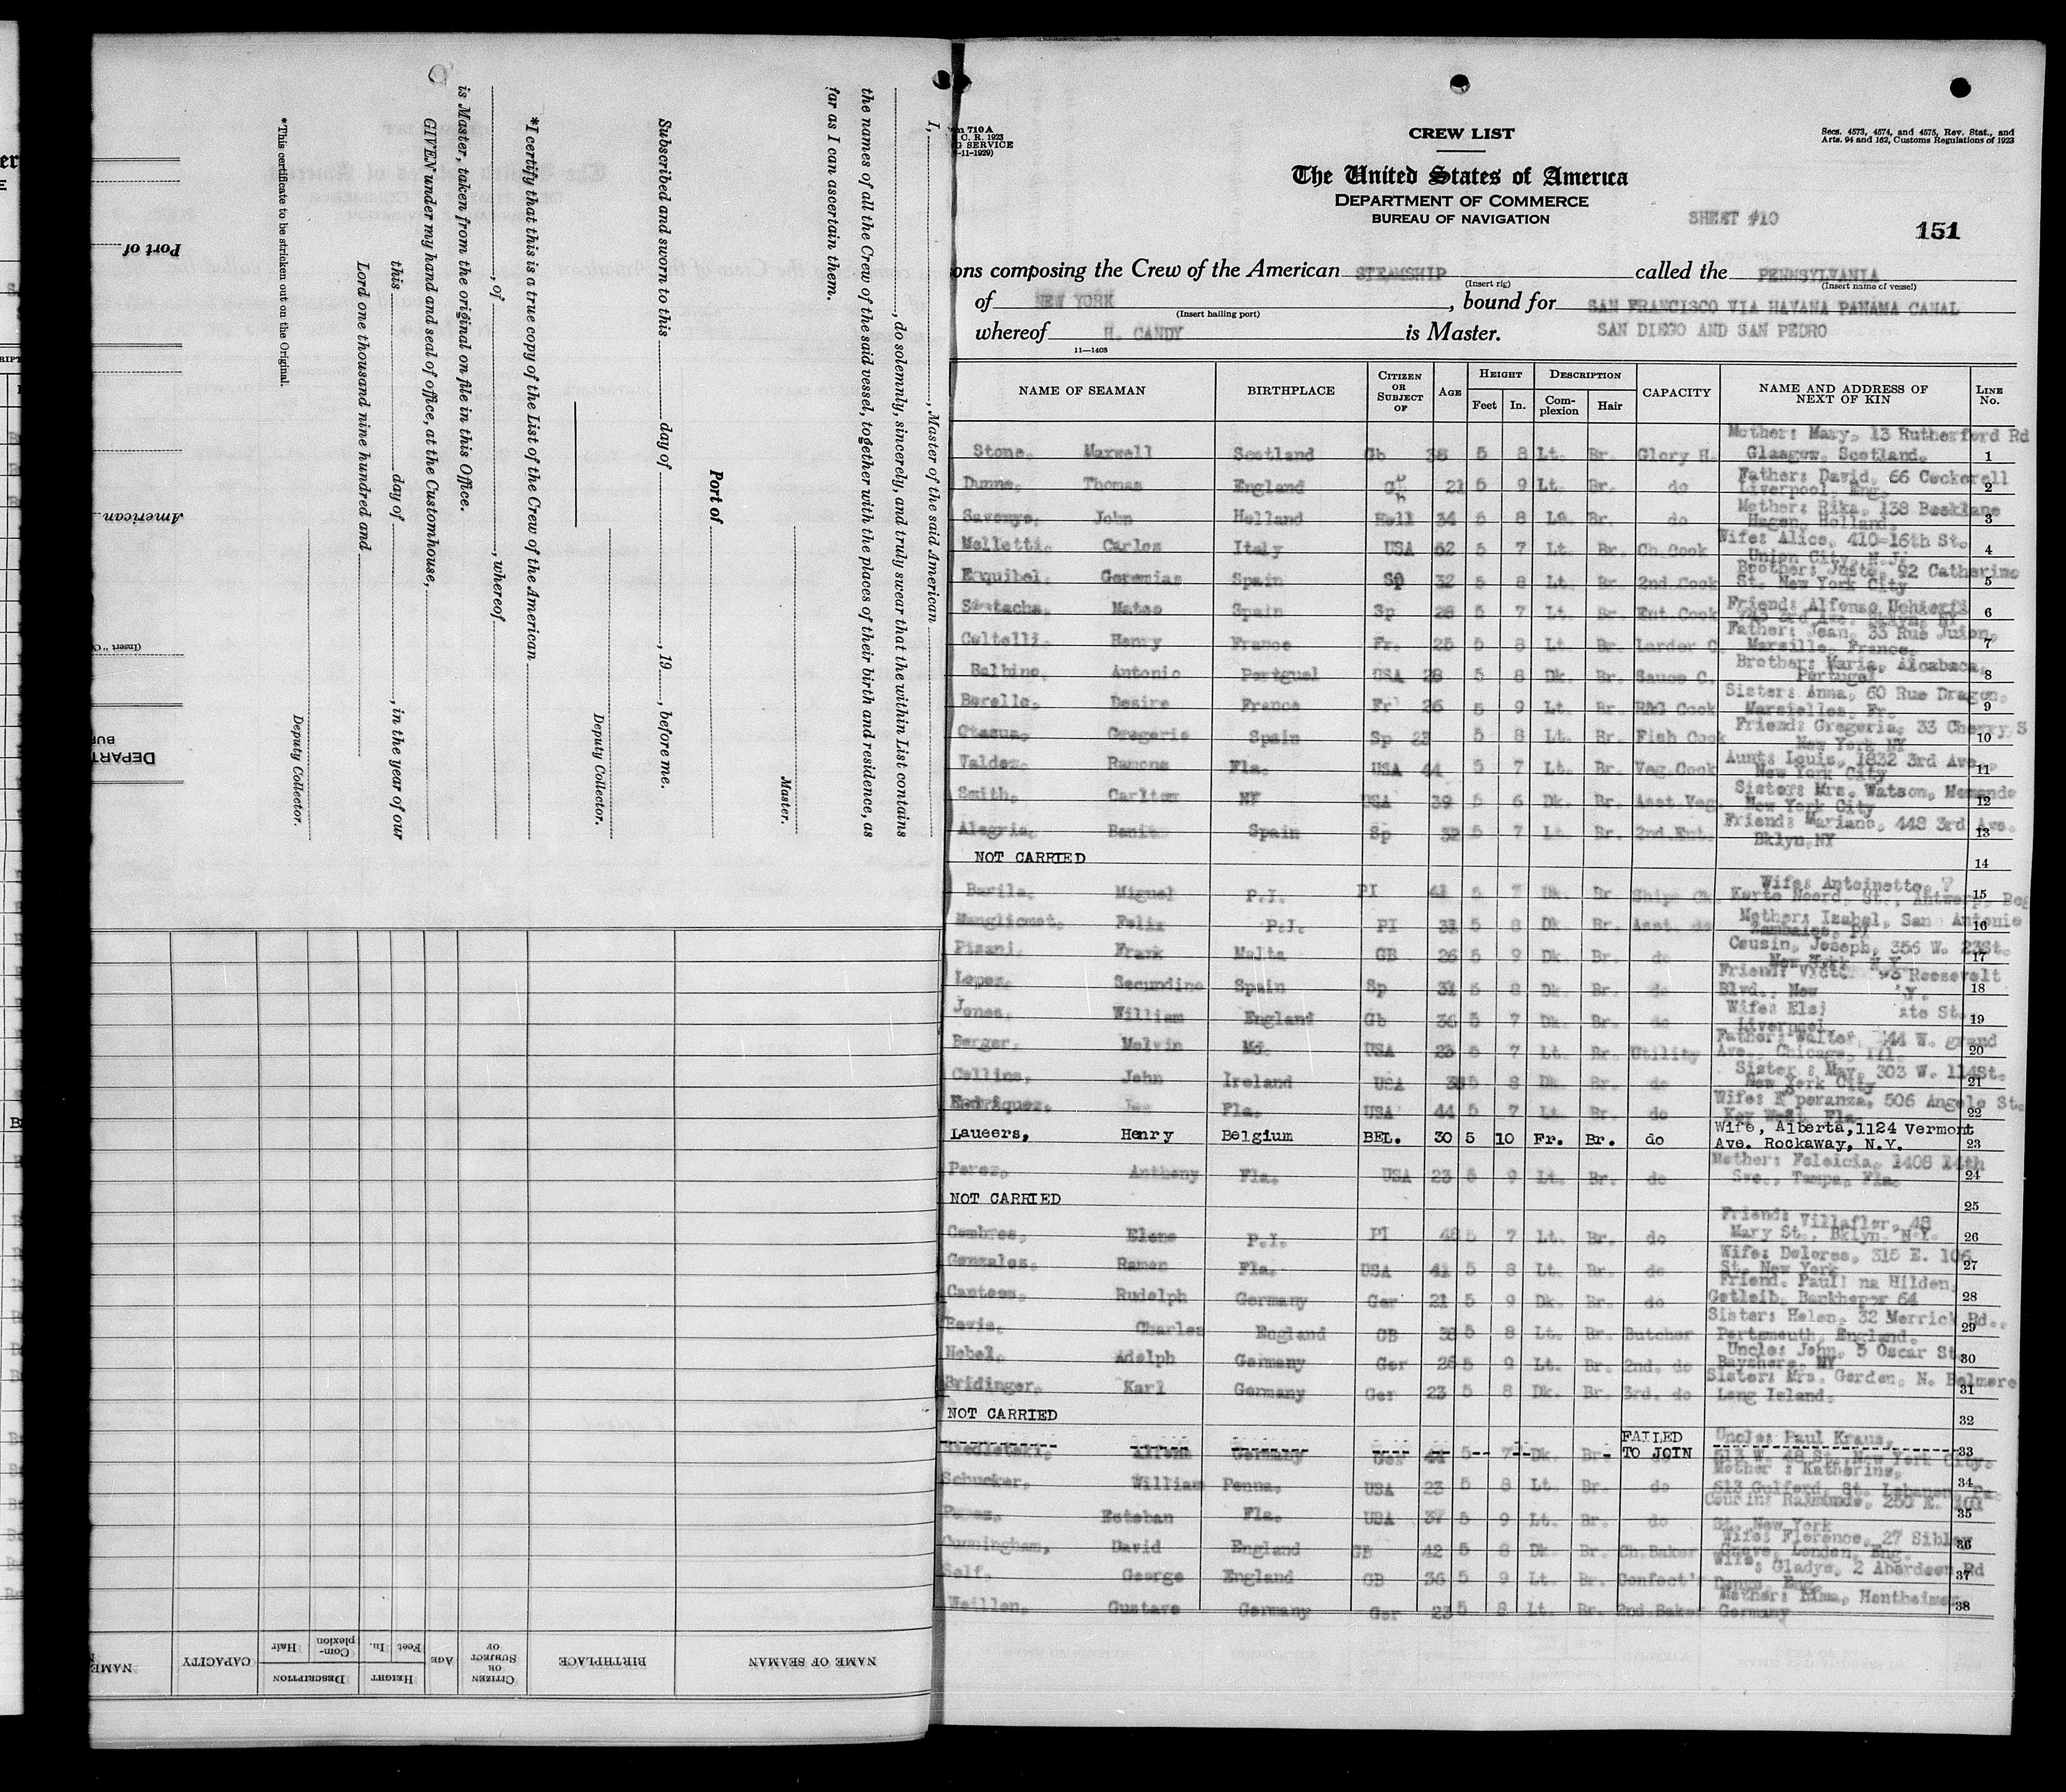 I, , Master of the said American
, do solemnly, sincerely, and truly swear that the within List contains
the names of all the Crew of the said vessel, together with the places of their birth and residence, as
far as I can ascertain them.
Master.
Port of
Subscribed and sworn to this day of , 19 , before me.
Deputy Collector.
*I certify that this is a true copy of the List of the Crew of the American
, of , whereof
is Master, taken from the original on file in this Office.
GIVEN under my hand and seal of office, at the Customhouse,
this day of , in the year of our
Lord one thousand nine hundred and
Deputy Collector.
*This certificate to be stricken out on the Original.
Port of
American
DEPART
BUR
NAME OF SEAMAN BIRTHPLACE CITIZEN OR SUBJECT OF AGE HEIGHT Feet In. DESCRIPTION Complexion Hair CAPACITY NAME
710 A
C. R. 1923
G SERVICE
-11-1929)
CREW LIST
Secs. 4573, 4574, and 4575, Rev. Stat., and
Arts. 94 and 162, Customs Regulations of 1923
The United States of America
DEPARTMENT OF COMMERCE
BUREAU OF NAVIGATION
SHEET #10
151
ons composing the Crew of the American STEAMSHIP called the PENNSYLVANIA
(Insert rig) (Insert name of vessel)
of NEW YORK , bound for SAN FRANCISCO VIA HAVANA PANAMA CANAL
(Insert hailing port)
whereof H. CANDY is Master. SAN DIEGO AND SAN PEDRO
11—1408
NAME OF SEAMAN BIRTHPLACE CITIZEN OR SUBJECT OF AGE HEIGHT Feet In. DESCRIPTION Com-plexion Hair CAPACITY NAME AND ADDRESS OF NEXT OF KIN LINE No.
Mother: Mary, 13 Rutherford Rd
Stone, Maxwell Scotland Gb 38 5 8 Lt. Br. Glory H. Glasgow, Scotland. 1
Father: David, 66 Cockerell
Dunne, Thomas England Gb 21 5 9 Lt. Br. do Liverpool, Eng. 2
Mother: Rika, 138 Beeklane
Savenye, John Holland Holl 34 5 8 Br. do Hagen, Holland. 3
Wife: Alice, 410-16th St.
Melletti, Carlos Italy USA 52 5 7 Lt. Br. Ch.Cook Union City, N.J. 4
Brother: Juste, 92 Catherine
Esquibel, Geremias Spain Sp 32 5 8 Lt. Br. 2nd.Cook St. New York City 5
Friend: Alfonso
Mateo Spain Sp 28 5 7 Lt. Br. Ent.Cook 6
Father: Jean, 33 Rue
Coltelli, Henry France Fr. 25 5 8 Lt. Br. Larder C. Marsille, France. 7
Brother: Maria, Alcabaca,
Balbino, Antonio Portguel USA 28 5 8 Dk. Br. Sauce C. Portugel 8
Sister: Anna, 60 Rue Dragon,
Borello, Desire France Fr 26 5 9 Lt. Br. R&G Cook Marsielles, Fr. 9
Friend: Gregoria, 33 Cherry S
Otazua, Gregorio Spain Sp 23 5 8 Lt. Br. Fish Cook New York NY 10
Aunt: Louis, 1832 3rd Ave.,
Valdez, Ramona Fla. USA 44 5 7 Lt. Br. Veg.Cook New York City 11
Sister: Mrs. Watson,
Smith, Carlton NY USA 39 5 6 Dk. Br. Asst.Veg. New York City 12
Friend: Mariano, 448 3rd Ave.
Alegria, Benito Spain Sp 32 5 7 Lt. Br. 2nd.Ent. Bklyn,NY 13
NOT CARRIED 14
Wife: Antoinette, ?
Barila, Miguel P.I. PI 41 5 7 Dk. Br Ships Ck. Korte Noord, St., Antwerp, Beg 15
Mother: Izabel, San Antonio
Manglicmot, Felix P.I. PI 31 5 8 Dk. Br. Asst. do Zambales, PI 16
Cousin, Joseph, 356 W. 23St.
Pisani, Frank Malta GB 26 5 9 Dk. Br. do New York, N.Y. 17
Friend: 93 Roosevelt
Lopez, Secundino Spain Sp 31 5 8 Dk. Br. do Blvd., New Y. 18
Wife:
Jones, William England Gb 36 5 7 Dk. Br. do Liverpool. 19
Father: Walter, 144 W. grand
Berger, Melvin Md. USA 23 5 7 Lt. Br. Utility Ave., Chicago, Ill. 20
Sister : May, 303 W. 114St.
Collins, John Ireland USA 38 5 8 Dk. Br. do New York City 21
Wife: E peranza, 506 Angelo St.
Rodriquez, Fla. USA 44 5 7 Lt. Br. do Key West, Fla. 22
Wife, Alberta,1124 Vermont
Laueers, Henry Belgium BEL. 30 5 10 Fr. Br. do Ave. Rockaway, N.Y. 23
Mother: Feleicia, 1408 14th
Perez, Anthony Fla. USA 23 5 9 Lt. Br. do Tampa, Fla. 24
NOT CARRIED 25
Friend: Villafler, 48
Combres, Elene P.I. PI 48 5 7 Lt. Br. do Mary St., Bklyn, N.Y. 26
Wife: Dolores, 315 E. 106
Gonzales, Ramon Fla. USA 41 5 8 Lt. Br. do St. New York 27
Friend. Paulina Hilden,
Rudolph Germany Ger 21 5 9 Dk. Br. do 64 28
Sister: Helen, 32 Merrick Rd.,
Bevis, Charles England GB 38 5 8 Lt. Br. Butcher Portsmouth, England. 29
Uncle: John, 5 Oscar St
Nebel, Adolph Germany Ger 26 5 9 Lt. Br. 2nd. do Bayshore, NY 30
Sister: Mrs. Gorden, N. Belmore
Bridinger, Karl Germany Ger 23 5 8 Dk. Br. 3rd. do Long Island. 31
NOT CARRIED 32
FAILED Uncle: Paul Kraus,
Germany Ger 44 5 7 Dk. Br TO JOIN 513 W. 48 St. New York City. 33
Mother : Katherine,
Schucker, William Penna. USA 23 5 8 Lt. Br. do 613 Gulford, St. Lebanon, Pa 34
Cousin: Raimundo, 250 E.
Perez, Esteban Fla. USA 37 5 9 Lt. Br. do St. New York 35
Wife: Florence, 27 Sibley
Cunningham, David England GB 42 5 8 Dk. Br. Ch.Baker London, Eng. 36
Wife: Gladys, 2 Aberdeen Rd
Self, George England GB 36 5 9 Lt. Br. Confect'r 37
Mother:
Weillen, Gustave Germany Ger 23 5 8 Lt. Br. 2nd.Baker Germany 38